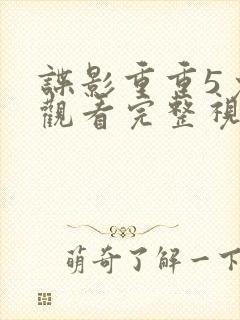 諜影重重5
觀看完整視
萌奇了解一下